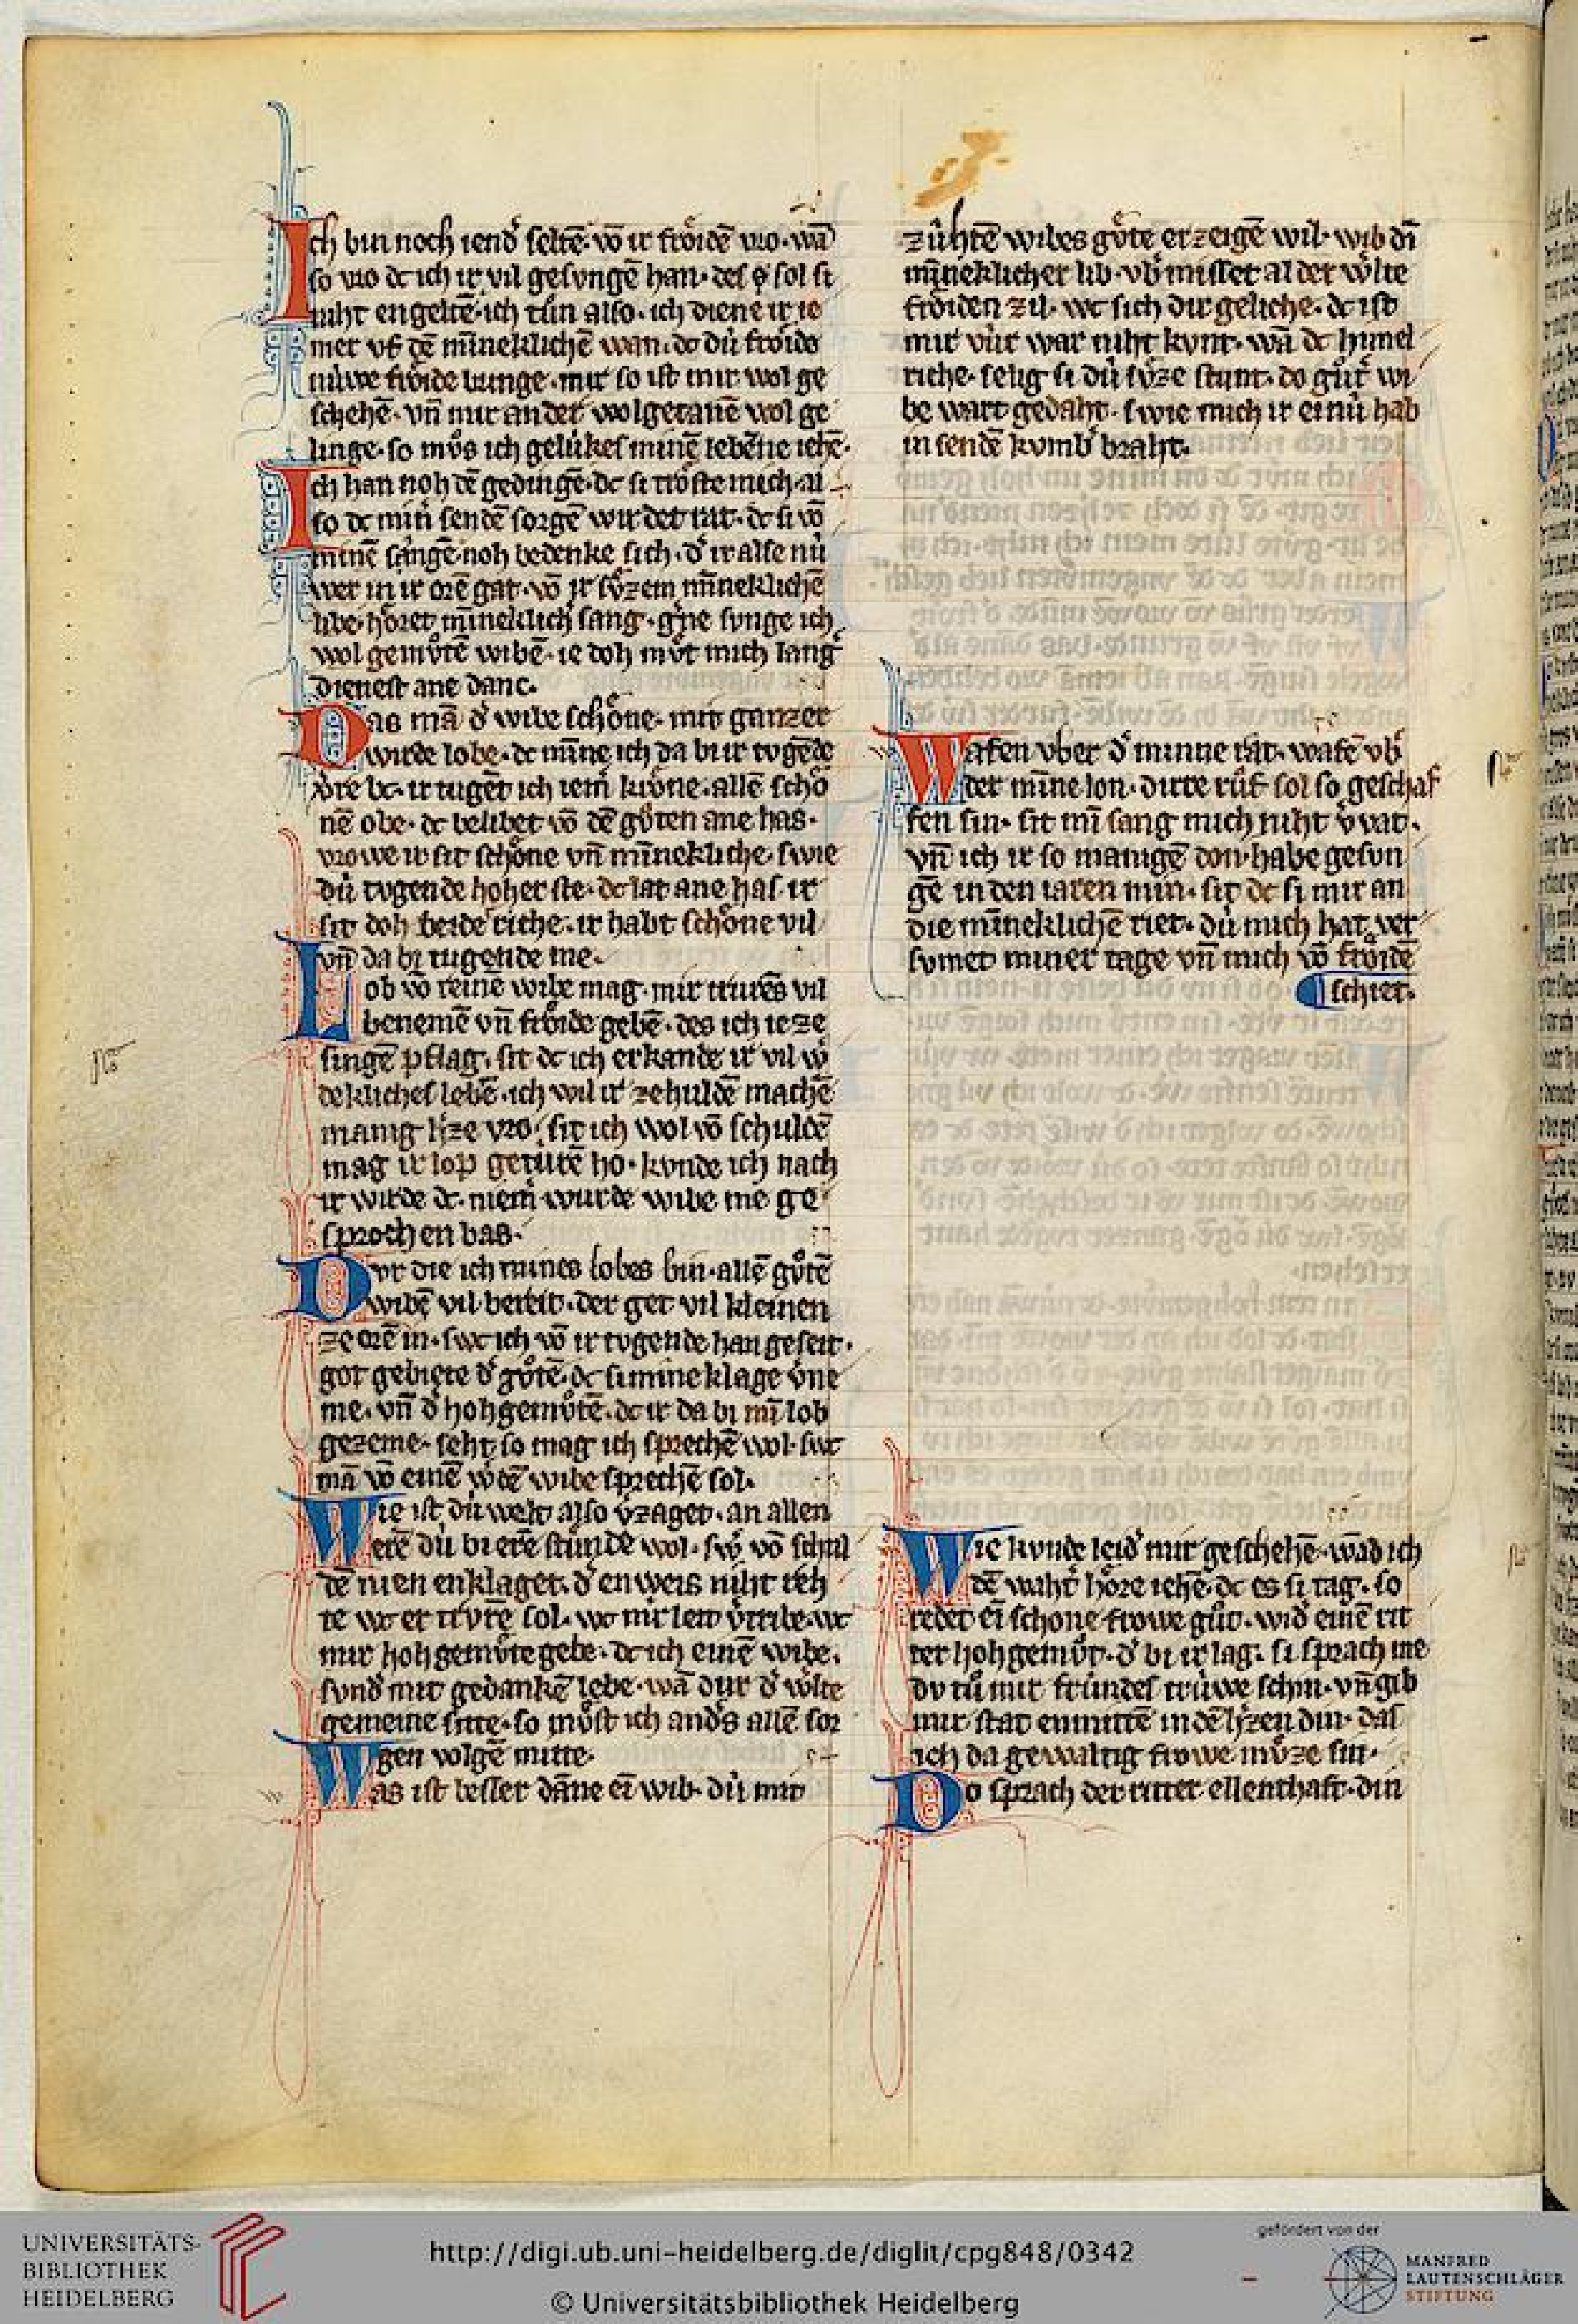 Ich bin noch iendˀ seltē. vō ir froͤidē vro. wā
so vro dc ich ir vil gesvngē han. des sol si
niht engeltē. ich tuͦn also. ich diene ir ie
mer vf dē mīneklichē wan. dc dú froͤide
núwe froͤide bringe. mir so ist mir wol ge
schehē. vn̄ mir an der wolgetanē wol ge
linge. so muͦs ich gelúkes minē lebēne iehē.
Ich han noh dē gedingē. dc si troͤste mich. al
so dc min̄ sendē sorgē wirdet rat. dc si vō
minē sangē. noh bedenke sich. dˀ ir alse nú
wer in ir orē gat. vō ir suͤzem mīneklichē
libe. hoͤret mīneklich sang. gˀne singe ich
wol gemuͦtē wibē. ie doh muͤt mich lang
dienest ane danc.
Das mā dˀ wibe schoͤne. mit ganzer
wirde lobe. dc mīne ich da bi ir tvgēde
vúre bc. ir tuget ich iemˀ kroͤne. allē schoͤ
nē obe. dc belibet vō dē guͦten ane has.
vrowe ir sit schoͤne vn̄ mīnekliche. swie
dú tvgende hoher ste. dc lat ane has. ir
sit doh beidˀ riche. ir habt schoͤne vil
vn̄ da bi tugende me.
Lob vō reinē wibe mag. mir trurēs vil
benemē vn̄ froͤide gebē. des ich ie ze
singē pflag. sit dc ich erkande ir vil wˀ
dekliches lebē. ich wil ir ze huldē machē
manig lize vro. sit ich wol vō schuldē
mag ir lop getúrē ho. kvnde ich nach
ir wirde dc. niemˀ wurde wibe me ge
sprochen bas.
Dvr die ich mines lobes bin. allē guͦtē
wibē vil bereit. der get vil kleinen
ze orē in. swc ich vō ir tvgende han geseit.
got gebiete dˀ guͦtē. dc si mine klage vˀne
me. vn̄ dˀ hohgemuͦtē. dc ir da bi mī lob
gezeme. seht so mag ich sprechē wol. swc
mā vō einē wˀdē wibe sprechē sol.
Wie ist dú welt also vˀzaget. an allen
erē dú bi erē stúnde wol. swˀ vō schul
dē nien enklaget. dˀ enweis niht reh
te wc er trvrē sol. wc mir leit vˀtribe. wc
mir hohgemuͤte gebe. dc ich einē wibe.
svndˀ mit gedankē lebe. wā dur dˀ wˀlte
gemeine sitte. so muͤst ich andˀs allē sor
gen volgē mitte.
Was ist besser dāne ei̅ wib. dú mit
zúhtē wibes guͤte erzeigē wil. wib dī
mīneklicher lib. vbˀ misset al der wˀlte
froͤiden zil. wc sich dir geliche. dc ist
mir vúr war niht kvnt. wā dc himel
riche. selig si dú suͤze stunt. do guͦtˀ wi
be wart gedaht. swie mich ir einú hab
in sendē kvmbˀ braht.
Wafen vber dˀ minne rat. wafē vbˀ
der mīne lon. dirre ruͦf sol so geschaf
fen sin. sit mī sang mich niht vˀvat.
vn̄ ich ir so manigē don. habe gesvn
gē in den iaren min. sit dc si mir an
die mīneklichē riet. dú mich hat ver
svmet miner tage vn̄ mich vō froͤidē
schiet.
Wie kvnde leidˀ mir geschehē. wād ich
dē wahtˀ hoͤre iehē. dc es si tag. so
redet ei̅ schone frowe guͦt. widˀ einē rit
ter hohgemuͦt. dˀ bi ir lag. si sprach me
dv tuͦ mir frúndes trúwe schin. vn̄ gib
mir stat enmittē in dē hˀzen din. das
ich da gewaltig frowe muͤze sin.
Do sprach der ritter ellenthaft. din
UNIVERSITÄTS-
BIBLIOTHEK
HEIDELBERG
http://digi.ub.uni-heidelberg.de/diglit/cpg848/0342
© Universitätsbibliothek Heidelberg
gefördert von der
MANFRED
LAUTENSCHLÄGER
STIFTUNG